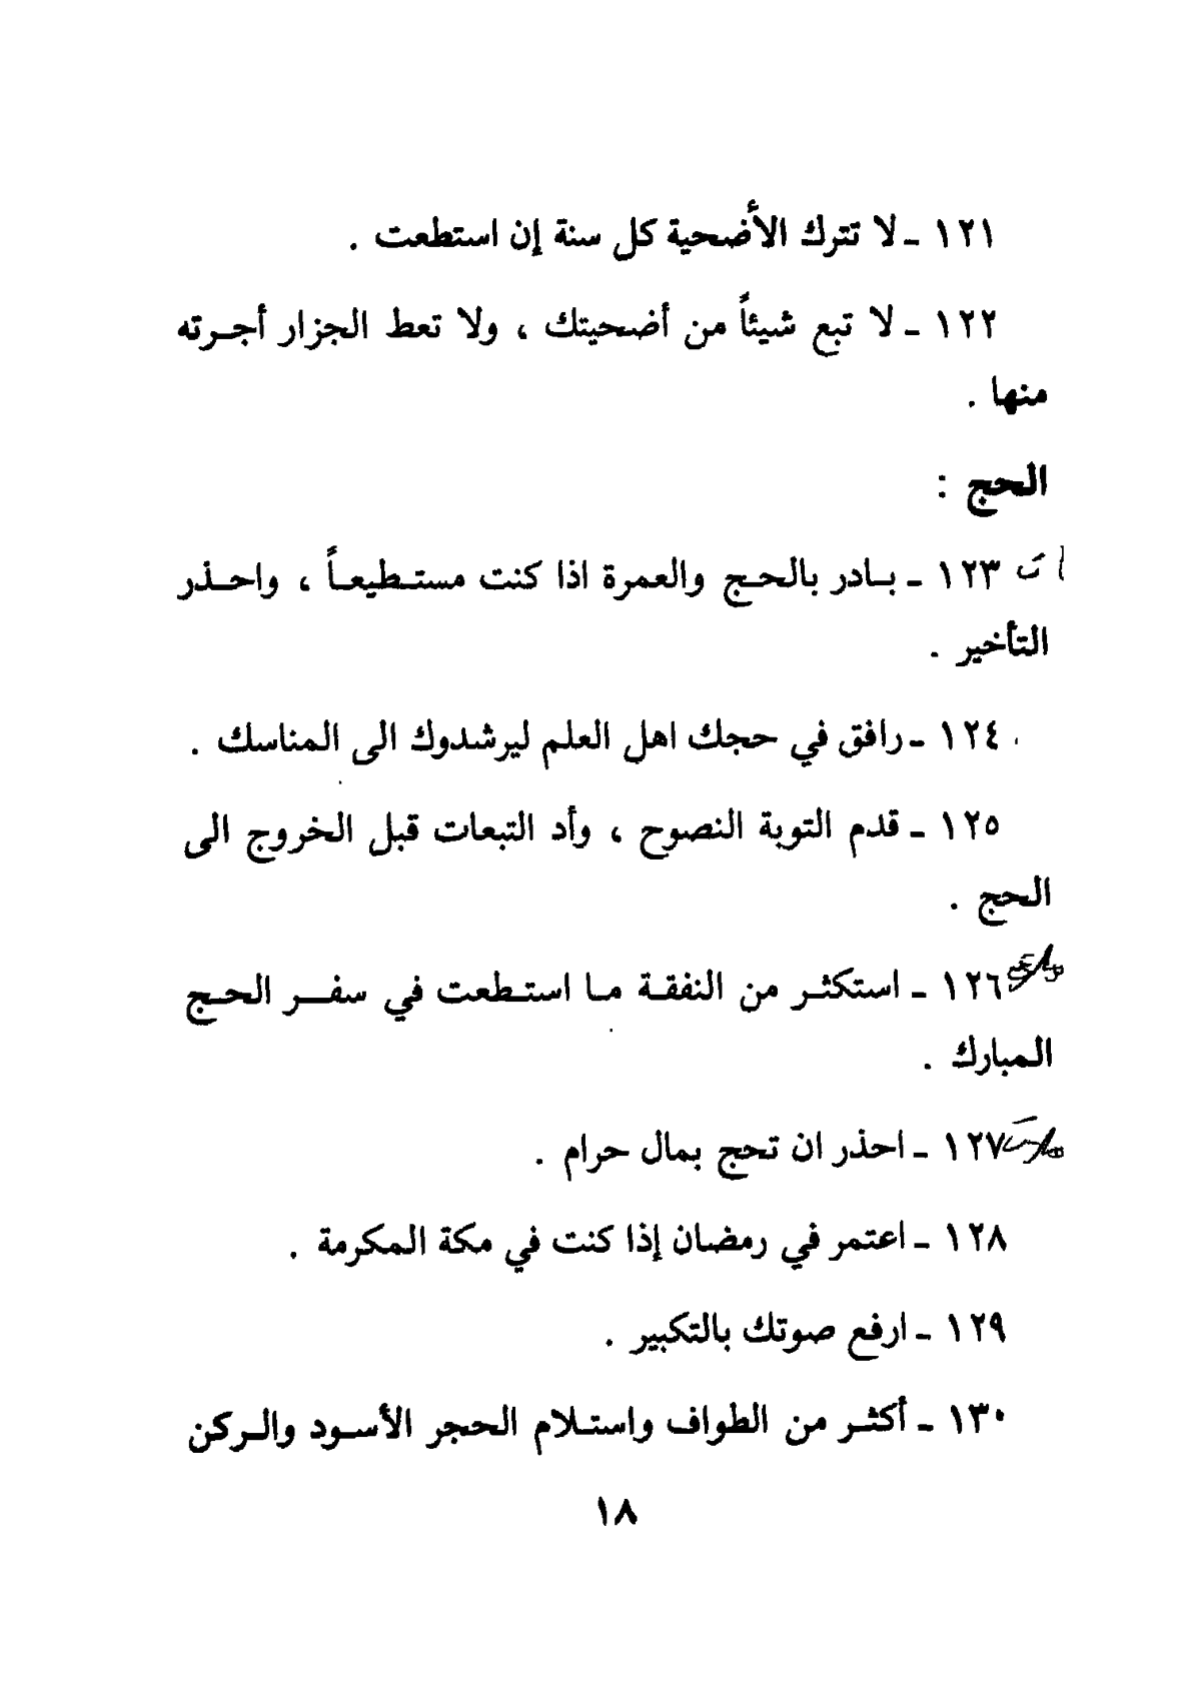 ١٢١ ـ لا تترك الأضحية كل سنة إن استطعت .
١٢٢ ـ لا تبع شيئاً من أضحيتك ، ولا تعط الجزار أجرته
منها .
الحج :
١٢٣ ـ بادر بالحج والعمرة اذا كنت مستطيعاً ، واحذر
التأخير .
١٢٤ ـ رافق في حجك اهل العلم ليرشدوك الى المناسك .
١٢٥ ـ قدم التوبة النصوح ، وأد التبعات قبل الخروج الى
الحج .
١٢٦ ـ استكثر من النفقة ما استطعت في سفر الحج
المبارك .
١٢٧ ـ احذر ان تحج بمال حرام .
١٢٨ ـ اعتمر في رمضان إذا كنت في مكة المكرمة .
١٢٩ ـ ارفع صوتك بالتكبير .
١٣٠ ـ أكثر من الطواف واستلام الحجر الأسود والركن
١٨